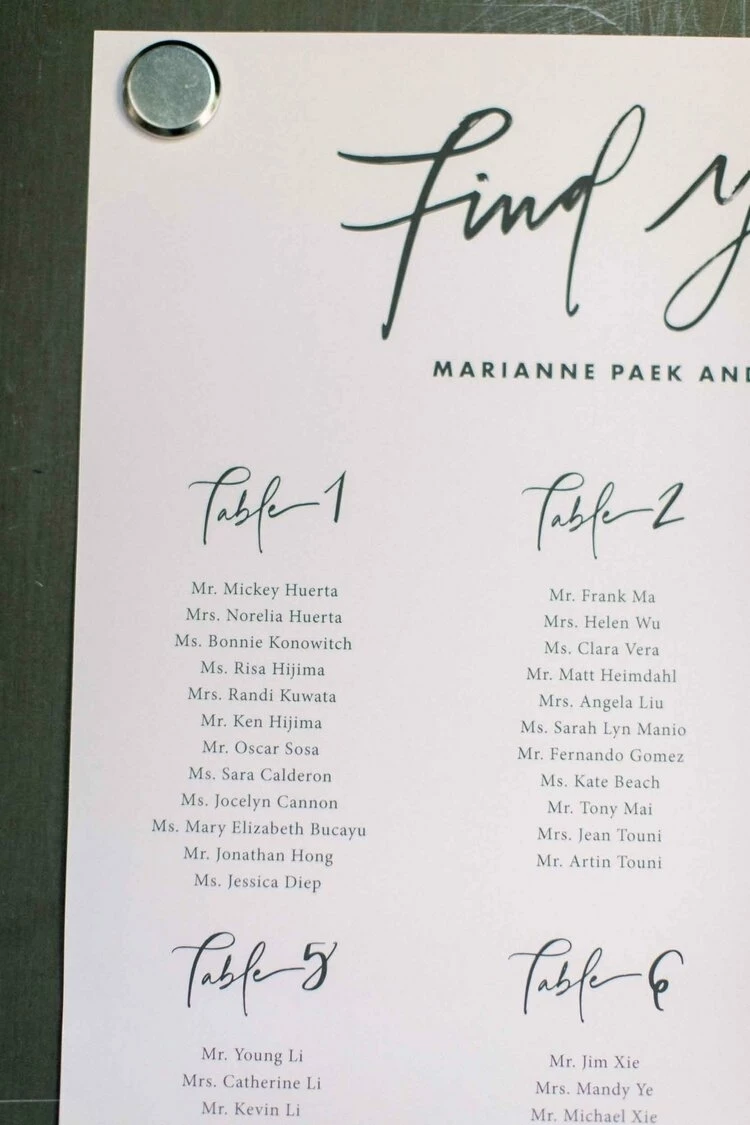 Find
MARIANNE PAEK AND
Table 1
Mr. Mickey Huerta
Mrs. Norelia Huerta
Ms. Bonnie Konowitch
Ms. Risa Hijima
Mrs. Randi Kuwata
Mr. Ken Hijima
Mr. Oscar Sosa
Ms. Sara Calderon
Ms. Jocelyn Cannon
Ms. Mary Elizabeth Bucayu
Mr. Jonathan Hong
Ms. Jessica Diep
Table 2
Mr. Frank Ma
Mrs. Helen Wu
Ms. Clara Vera
Mr. Matt Heimdahl
Mrs. Angela Liu
Ms. Sarah Lyn Manio
Mr. Fernando Gomez
Ms. Kate Beach
Mr. Tony Mai
Mrs. Jean Touni
Mr. Artin Touni
Table 5
Mr. Young Li
Mrs. Catherine Li
Mr. Kevin Li
Table 6
Mr. Jim Xie
Mrs. Mandy Ye
Mr. Michael Xie